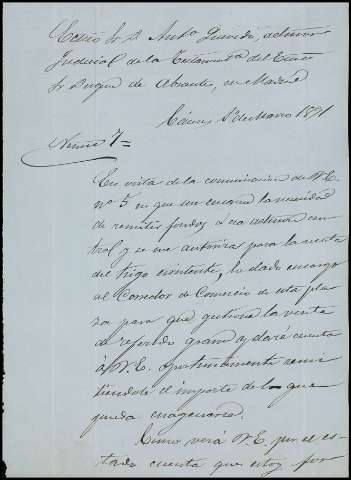 Excmo Sr D. Antº Quevedo, admor
Judicial de la Testamentª del Excmo
Sr Duque de Abrantes, en Madrid
Cáceres 1º de Marzo 1891
Númº 7=
En vista de la comunicacion de V.E.
nº 5 en que me encarece la necesidad
de remitir fondos á esa admon cen-
tral y se me autoriza para la venta
del trigo existente, he dado encargo
al Corredor de Comercio de esta pla-
za para que gestione la venta
de referido grano y daré cuenta
á V.E. oportunamente remi-
tiendole el importe de lo que
pueda enagenarse.
Como verá V.E. por el es-
tado cuenta que estoy for